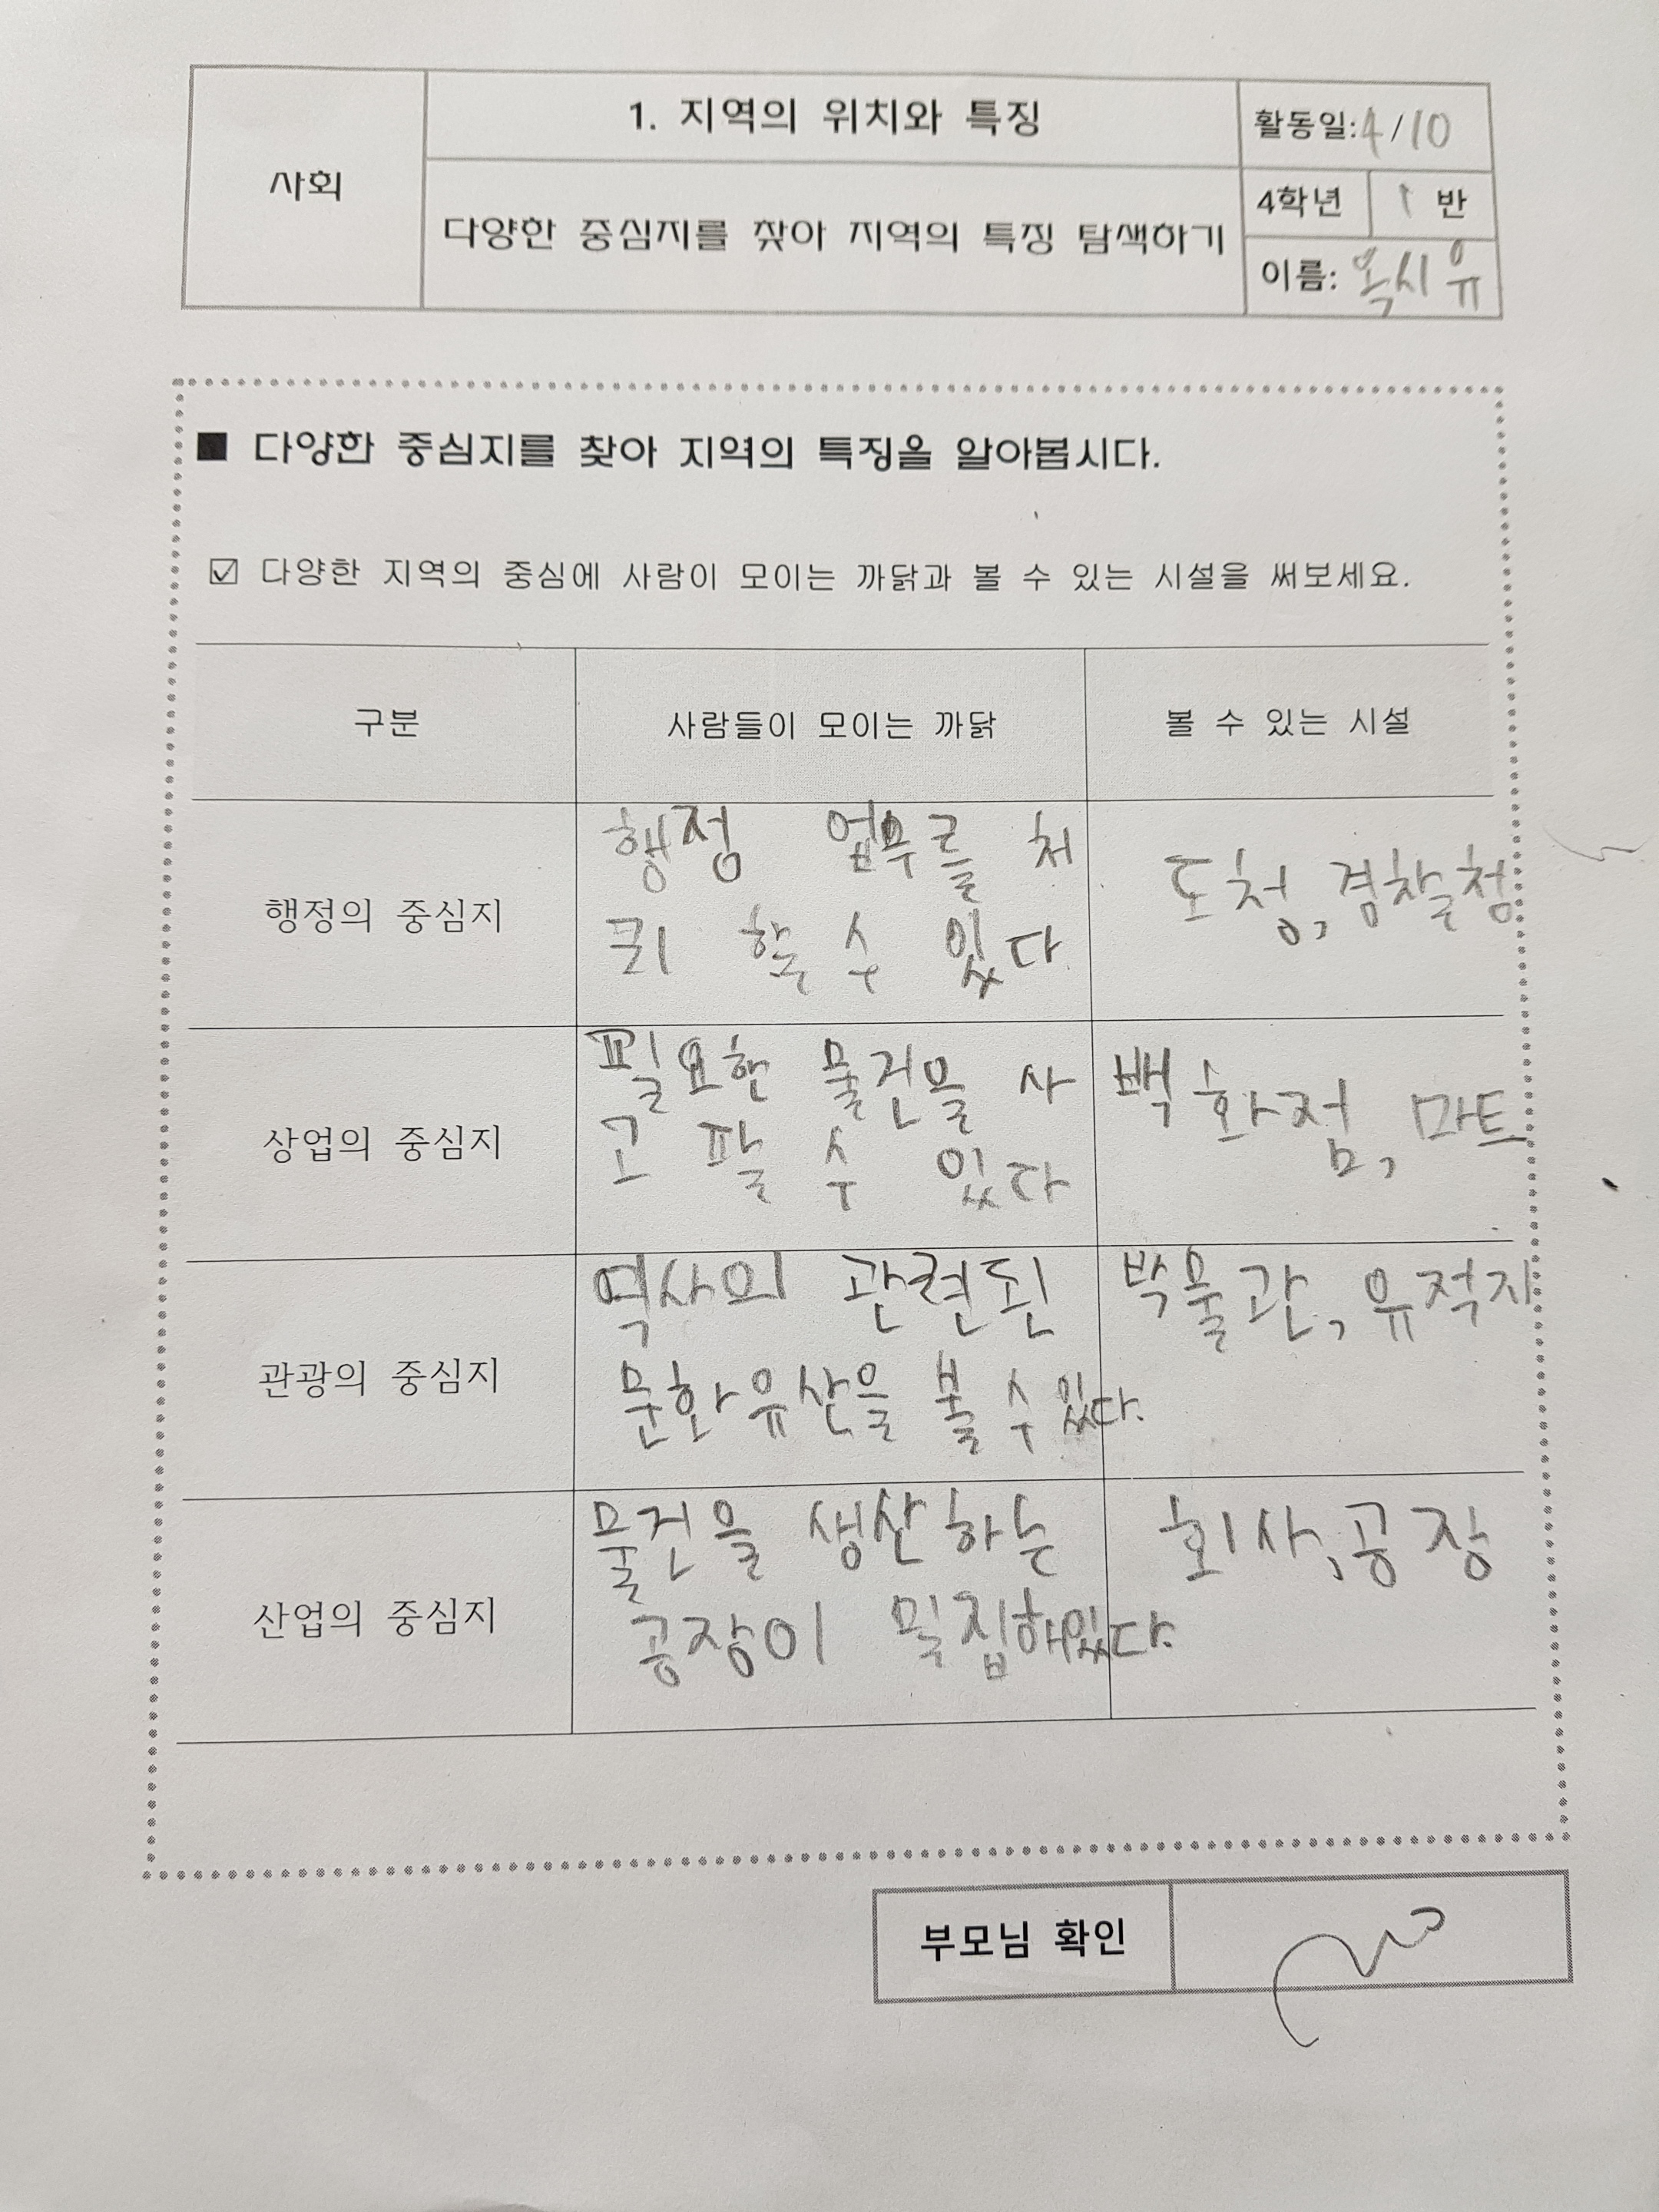 사회
1. 지역의 위치와 특징
다양한 중심지를 찾아 지역의 특징 탐색하기
활동일: 4/10
4학년 1 반
이름: 옥시유
■ 다양한 중심지를 찾아 지역의 특징을 알아봅시다.
☑ 다양한 지역의 중심에 사람이 모이는 까닭과 볼 수 있는 시설을 써보세요.
구분 사람들이 모이는 까닭 볼 수 있는 시설
행정의 중심지
행정 업무를 처
리 할 수 있다
도청, 경찰청
상업의 중심지
필요한 물건을 사
고 팔 수 있다
백화점, 마트
관광의 중심지
역사의 관련된
문화유산을 볼 수 있다.
박물관, 유적지
산업의 중심지
물건을 생산하는
공장이 밀집해있다.
회사, 공장
부모님 확인